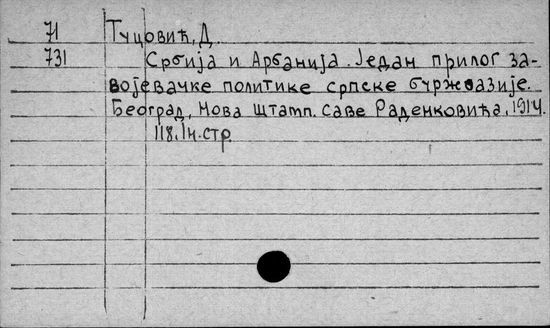 71 Туцовић, Д.
731 Србија и Арбанија. Један прилог за-
војевачке политике српске буржоазије.
Београд, Нова штамп. Саве Раденковића, 1914.
118.1н.стр.